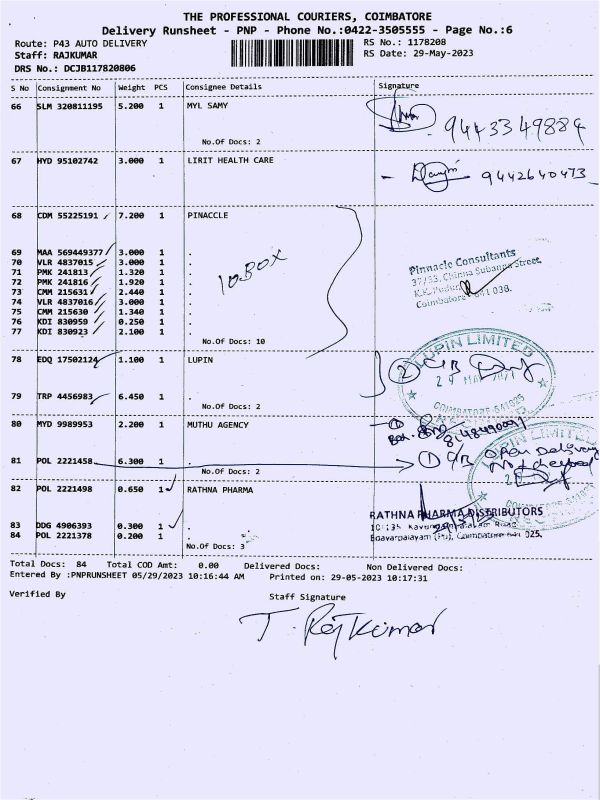 THE PROFESSIONAL COURIERS, COIMBATORE
Delivery Runsheet - PNP - Phone No.:0422-3505555 - Page No.:6
Route: P43 AUTO DELIVERY RS No.: 1178208
Staff: RAJKUMAR RS Date: 29-May-2023
DRS No.: DCJB117820806
S No Consignment No Weight PCS Consignee Details Signature
66 SLM 320811195 5.200 1 MYL SAMY
9443349884
No.Of Docs: 2
67 HYD 95102742 3.000 1 LIRIT HEALTH CARE
9442640473
68 CDM 55225191 7.200 1 PINACCLE
69 MAA 569449377 3.000 1 .
70 VLR 4837015 3.000 1 .
71 PMK 241813 1.320 1 .
72 PMK 241816 1.920 1 .
73 CMM 215631 2.440 1 .
74 VLR 4837016 3.000 1 .
75 CMM 215630 1.340 1 .
76 KDI 830959 0.250 1 .
77 KDI 830923 2.100 1 .
10 BOX
No.Of Docs: 10
Pinnacle Consultants
37/53, Chinna Subanna Street,
K.K. Pudur
Coimbatore - 641 038.
78 EDQ 17502124 1.100 1 LUPIN
LUPIN LIMITED
2 C/B
COIMBATORE-641025
79 TRP 4456983 6.450 1 .
No.Of Docs: 2
80 MYD 9989953 2.200 1 MUTHU AGENCY
81 POL 2221458 6.300 1 .
No.Of Docs: 2
LUPIN LIMITED
1 C/B open Delivery
not checked
82 POL 2221498 0.650 1 RATHNA PHARMA
83 DDG 4906393 0.300 1 .
84 POL 2221378 0.200 1 .
No.Of Docs: 3
RATHNA PHARMA DISTRIBUTORS
Total Docs: 84 Total COD Amt: 0.00 Delivered Docs: Non Delivered Docs:
Entered By :PNPRUNSHEET 05/29/2023 10:16:44 AM Printed on: 29-05-2023 10:17:31
Verified By Staff Signature
T. Rajkumar